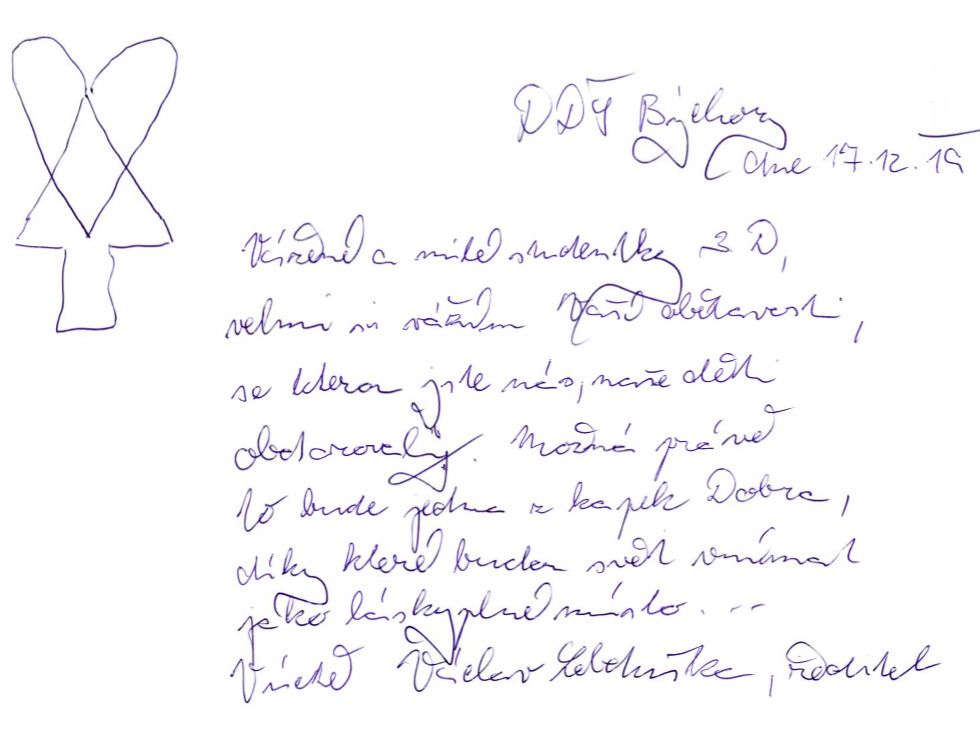 DDŠ Býchory
dne 17.12.19
Vážené a milé studentky 3. D,
velmi si vážím Vaší obětavosti,
se kterou jste nás, naše děti
obdarovaly. Možná právě
to bude jedna z kapek Dobra,
díky které budou svět vnímat
jako láskyplné místo...
Vřele Václav, ředitel